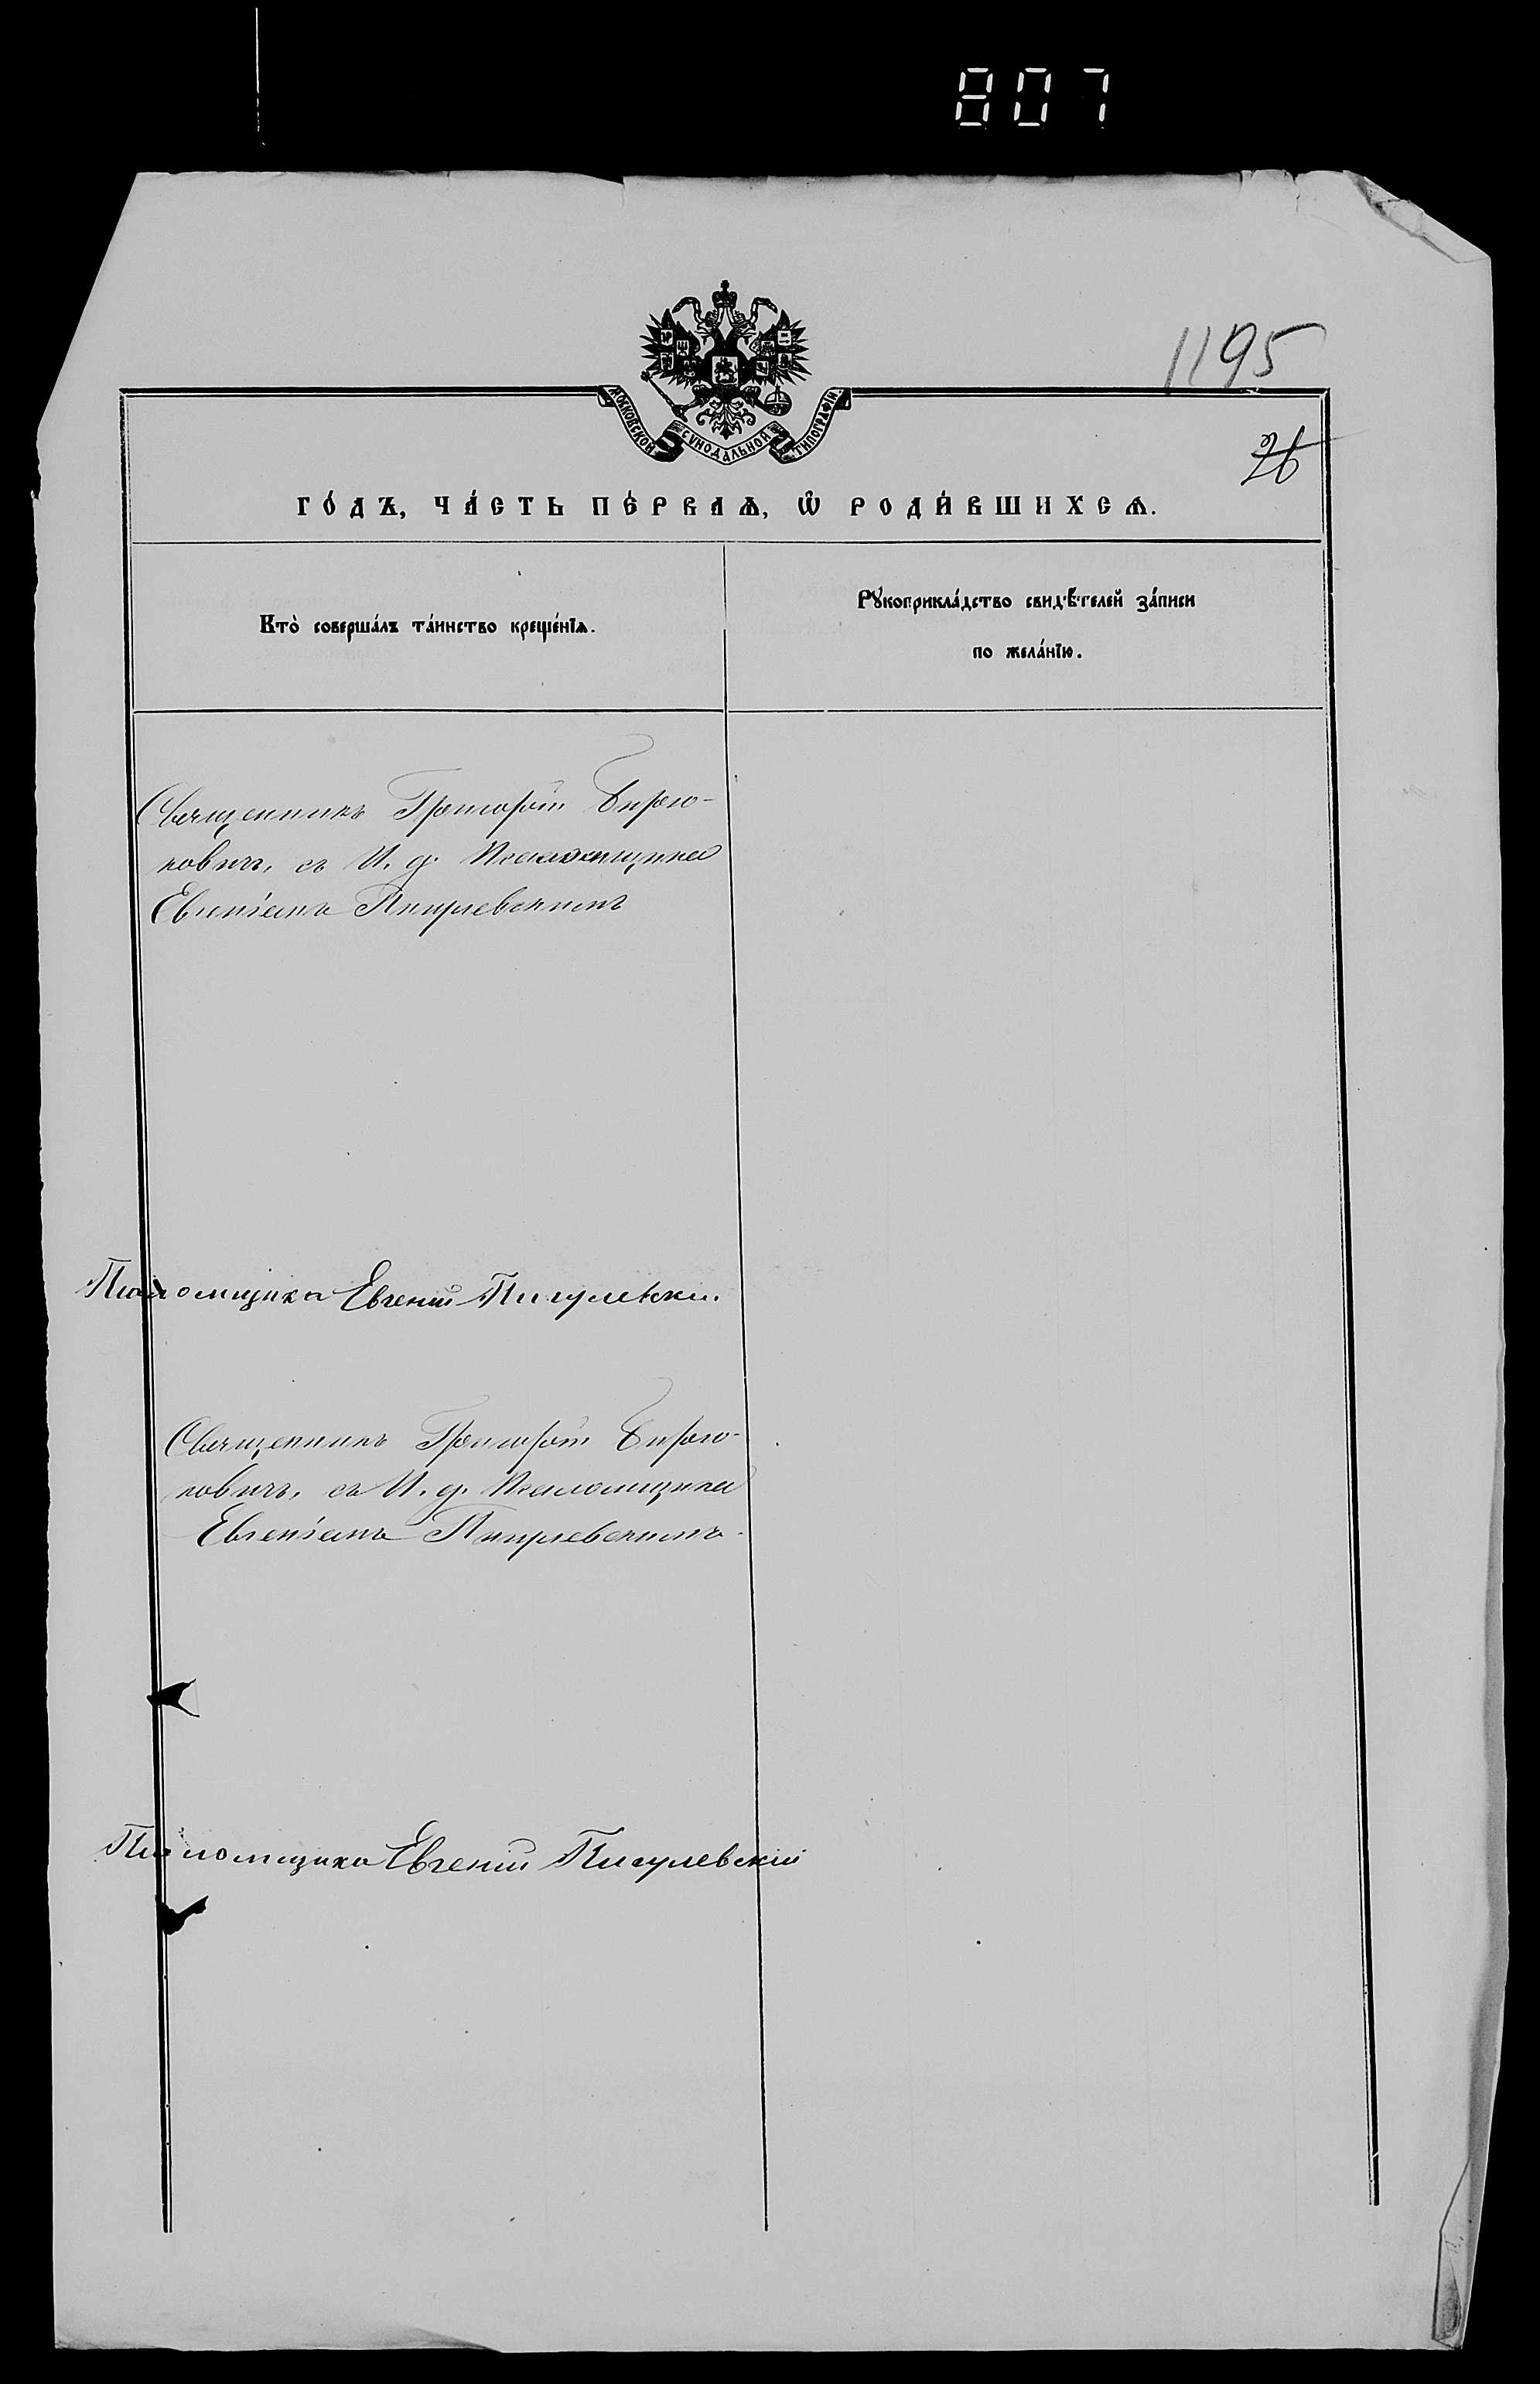 807
1195
МОСКОВСКОЙ СѴНОДАЛЬНОЙ ТИПОГРАФІИ
26
ГО́ДЪ, ЧА́СТЬ ПЕ́РВАѦ, Ѡ҆ РОДИ́ВШИХСѦ.
Кто̀ соверша́лъ та́инство креще́нїѧ.
Рꙋкоприкла́дство свидѣ́телей за́писи
по жела́нїю.
Священникъ Григорій Бирю-
ковичъ, съ И. д. Псаломщика
Евгеніемъ Пигулевскимъ
Псаломщика Евгеній Пигулевскій.
Священникъ Григорій Бирю-
ковичъ, съ И. д. Псаломщика
Евгеніемъ Пигулевскимъ.
Псаломщика Евгеній Пигулевскій